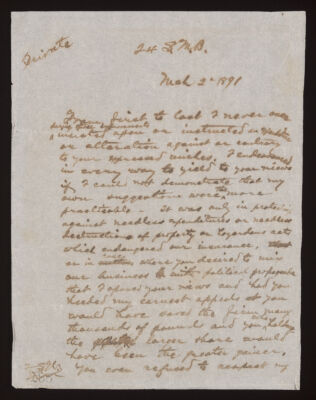 Private
24 S. M. B.
Mch 2d 1891
From first to last I never once
upon or instructed
or alteration against or contrary
to your expressed wishes. I endeavored
in every way to yield to your views
if I could not demonstrate that my
own suggestions were the more
practicable. It was only in protesting
against needless expenditures or needless
destruction of property or hazardous acts
which endangered our insurance,
or in where you desired to mix
our business with political propaganda
that I opposed your views and had you
heeded my earnest appeals
would have saved the firm many
thousands of pounds and you who hold
the larger share would
have been the greater gainer.
You even refused to respect my